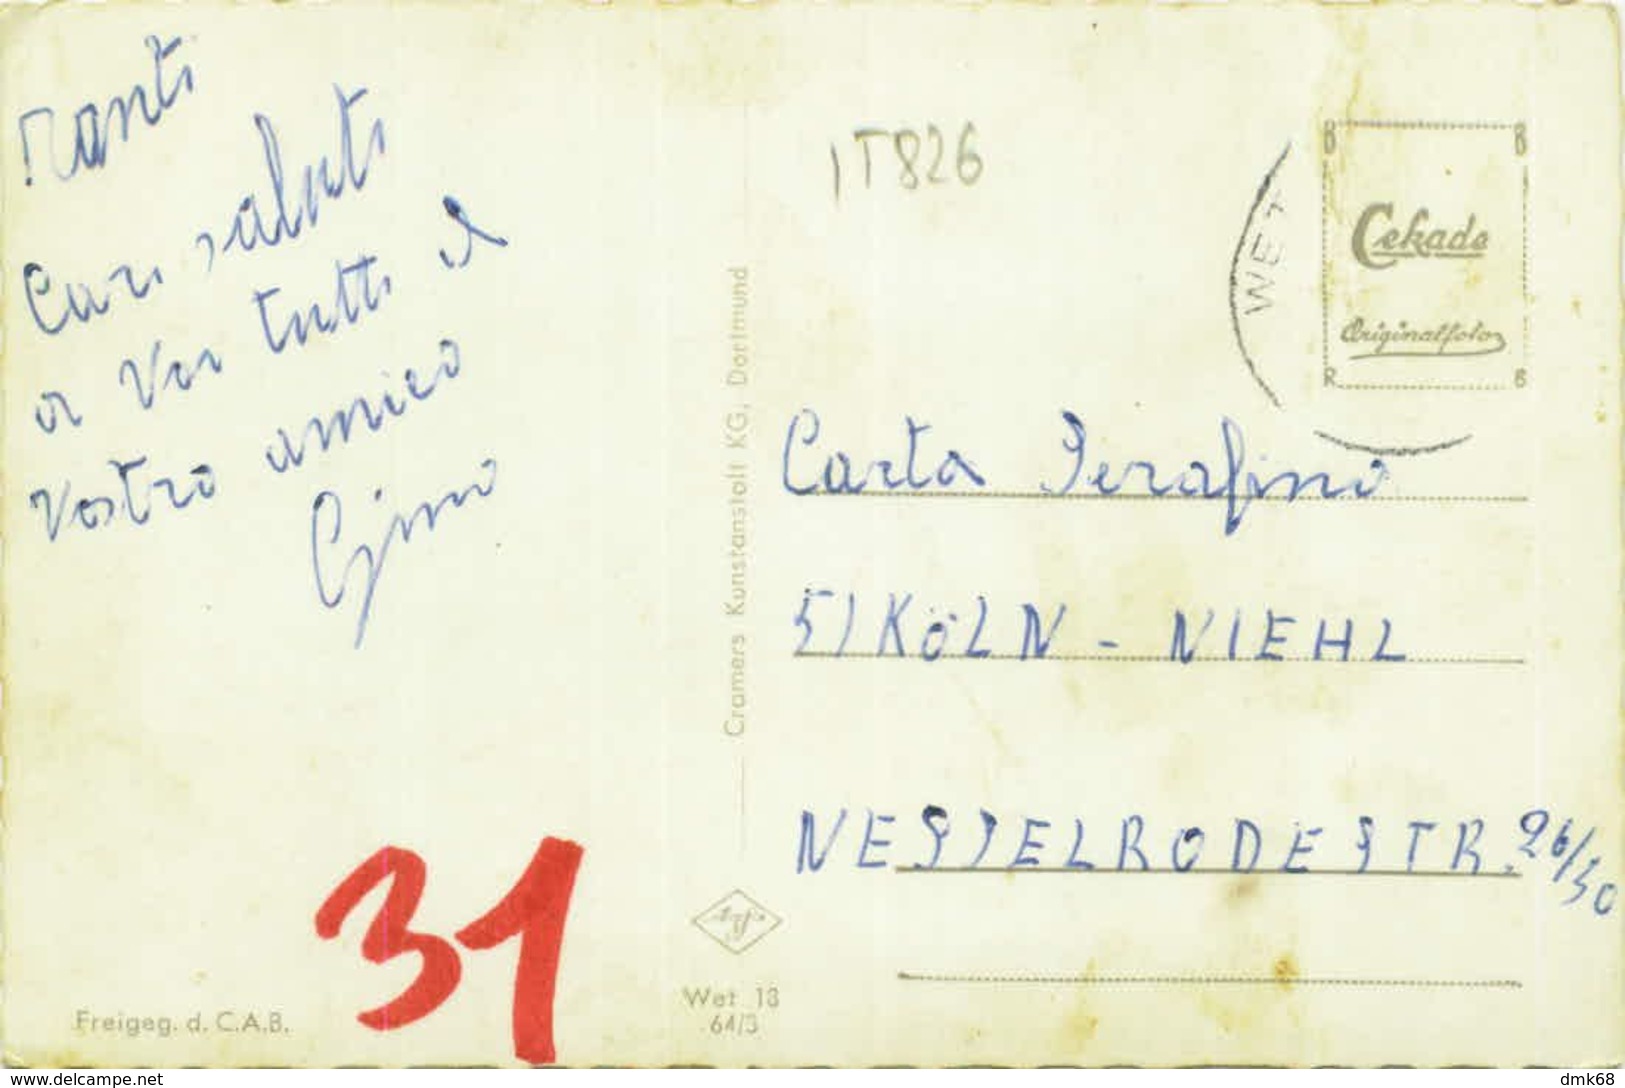 Tanti
Cari saluti
a Voi tutti il
Vostro amico
Gino
Freigeg. d. C.A.B.
31
IT826
Cramers Kunstanstalt KG, Dortmund
Agfa
Wet 13
64/3
WET
Cekade
Originalfoto
Carta Serafino
5 KÖLN - NIEHL
NESSELRODESTR. 26/30
www.delcampe.net
dmk68